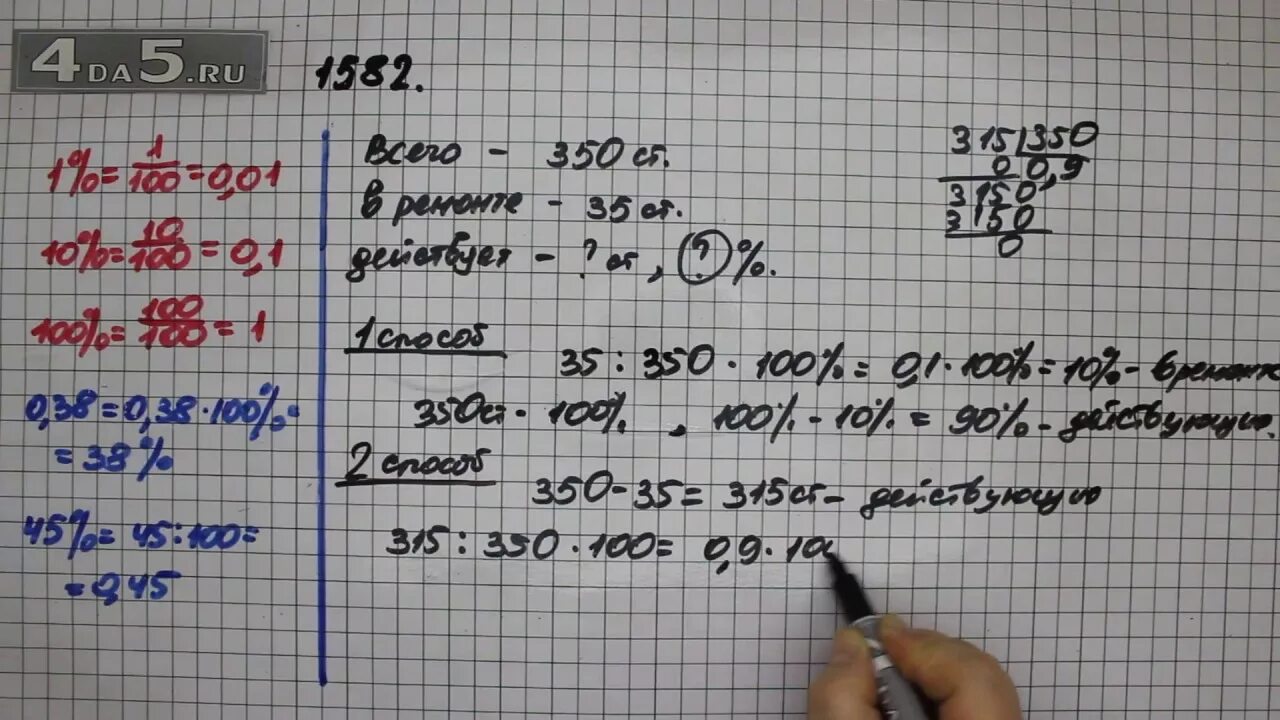 4DA5.RU
1582.
1% = 1/100 = 0,01
10% = 10/100 = 0,1
100% = 100/100 = 1
0,38 = 0,38 · 100% =
= 38%
45% = 45 : 100 =
= 0,45
Всего - 350 ст.
в ремонте - 35 ст.
действует - ? ст, (?)%.
315 | 350
0 0,9
3150
3150
0
1 способ
35 : 350 · 100% = 0,1 · 100% = 10% - в ремонте
350ст - 100% , 100% - 10% = 90% - действующие.
2 способ
350 - 35 = 315 ст - действующие
315 : 350 · 100 = 0,9 · 10